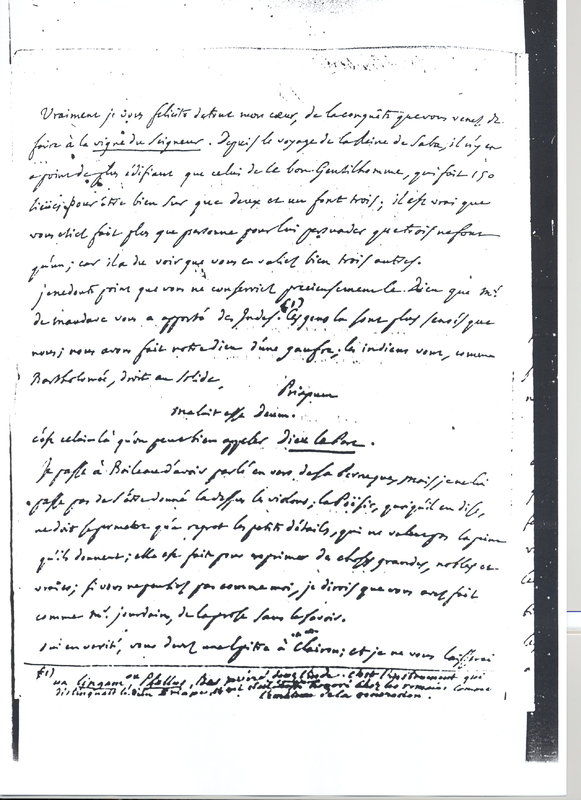 Vraiment je vous felicite de tout mon cœur, de la conquête que vous venez de
faire à la vigne du Seigneur. Depuis le voyage de la Reine de Saba, il n'y en
a point de plus édifiant que celui de le bon Gentilhomme, qui fait 150
lieües pour être bien sur que deux et un font trois; il est vrai que
vous etiez fait plus que personne pour lui persuader que trois ne font
qu'un; car il a du voir que vous en valiez bien trois autres.
je ne doute point que vous ne conserviez precieusement le Dieu que Mr.
de maudave vous a apporté des Indes. (1) Ces gens la sont plus sensés que
nous; nous avons fait notre dieu d'une gaufre; les indiens vont, comme
Bartholomée, droit au solide,
Priapum
maluit esse Deum.
c'est celui là qu'on peut bien appeler Dieu le Pere.
Je passe à Boileau d'avoir parlé en vers de sa Perruque, mais je ne lui
passe pas de s'être donné la dessus les violons; la Poësie, quoiqu'il en dise,
ne doit se permettre qu'a regret les petits détails, qui ne valent pas la peine
qu'ils donnent; elle est fait pour exprimer de choses grandes, nobles et
vraies; si vous ne pensiez pas comme moi, je dirois que vous avez fait
comme Mr. jourdain, de la prose sans le savoir.
oui en verité, vous devez une Epitre à Clairon; et je ne vous laisserai
(1) un lingam ou Phallus, Dieu
distinguait le dieu Priape, chez les romains comme
l'emblème de la generation.